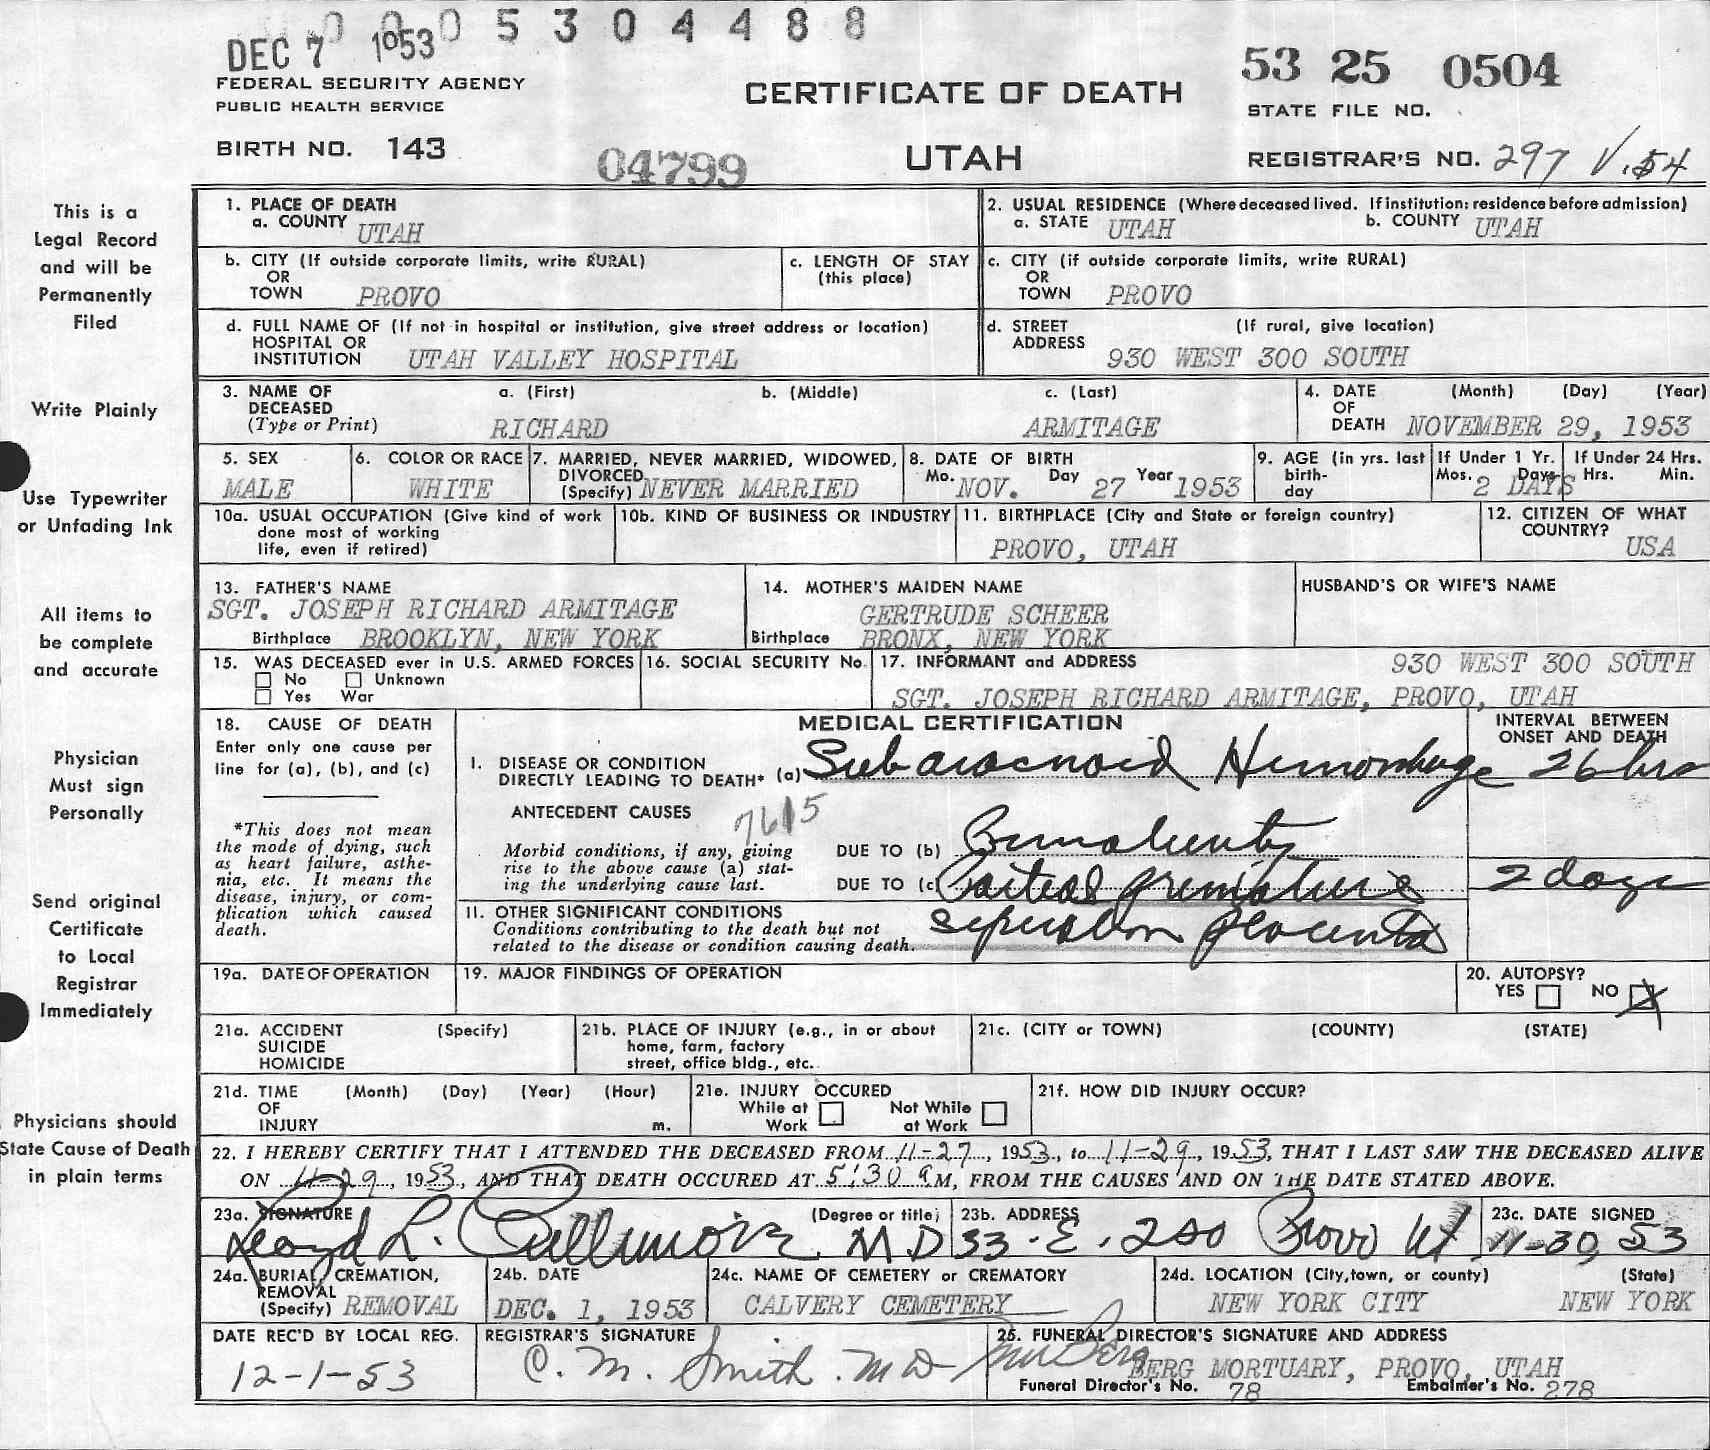 0005304488
DEC 7 1953
53 25 0504
FEDERAL SECURITY AGENCY
PUBLIC HEALTH SERVICE
CERTIFICATE OF DEATH
STATE FILE NO.
BIRTH NO. 143
04799
UTAH
REGISTRAR'S NO. 297 V.54
This is a
Legal Record
and will be
Permanently
Filed
1. PLACE OF DEATH
a. COUNTY UTAH
2. USUAL RESIDENCE (Where deceased lived. If institution: residence before admission)
a. STATE UTAH b. COUNTY UTAH
b. CITY (If outside corporate limits, write RURAL)
OR
TOWN PROVO
c. LENGTH OF STAY
(this place)
c. CITY (if outside corporate limits, write RURAL)
OR
TOWN PROVO
d. FULL NAME OF (If not in hospital or institution, give street address or location)
HOSPITAL OR
INSTITUTION UTAH VALLEY HOSPITAL
d. STREET (If rural, give location)
ADDRESS
930 WEST 300 SOUTH
Write Plainly
3. NAME OF a. (First) b. (Middle) c. (Last)
DECEASED
(Type or Print) RICHARD ARMITAGE
4. DATE (Month) (Day) (Year)
OF
DEATH NOVEMBER 29, 1953
Use Typewriter
or Unfading Ink
5. SEX
MALE
6. COLOR OR RACE
WHITE
7. MARRIED, NEVER MARRIED, WIDOWED,
DIVORCED
(Specify) NEVER MARRIED
8. DATE OF BIRTH
Mo. NOV. Day 27 Year 1953
9. AGE (in yrs. last
birth-
day
If Under 1 Yr.
Mos. Days
2 DAYS
If Under 24 Hrs.
Hrs. Min.
10a. USUAL OCCUPATION (Give kind of work
done most of working
life, even if retired)
10b. KIND OF BUSINESS OR INDUSTRY
11. BIRTHPLACE (City and State or foreign country)
PROVO, UTAH
12. CITIZEN OF WHAT
COUNTRY?
USA
All items to
be complete
and accurate
13. FATHER'S NAME
SGT. JOSEPH RICHARD ARMITAGE
Birthplace BROOKLYN, NEW YORK
14. MOTHER'S MAIDEN NAME
GERTRUDE SCHEER
Birthplace BRONX, NEW YORK
HUSBAND'S OR WIFE'S NAME
15. WAS DECEASED ever in U.S. ARMED FORCES
No Unknown
Yes War
16. SOCIAL SECURITY No.
17. INFORMANT and ADDRESS 930 WEST 300 SOUTH
SGT. JOSEPH RICHARD ARMITAGE, PROVO, UTAH
Physician
Must sign
Personally
18. CAUSE OF DEATH
Enter only one cause per
line for (a), (b), and (c)
*This does not mean
the mode of dying, such
as heart failure, asthe-
nia, etc. It means the
disease, injury, or com-
plication which caused
death.
MEDICAL CERTIFICATION
INTERVAL BETWEEN
ONSET AND DEATH
I. DISEASE OR CONDITION
DIRECTLY LEADING TO DEATH* (a) Subaracnoid Hemorrhage 26 hrs
ANTECEDENT CAUSES
7615
Morbid conditions, if any, giving
rise to the above cause (a) stat-
ing the underlying cause last.
DUE TO (b) Prematurity
DUE TO (c) Partial premature 2 days
separation placenta
II. OTHER SIGNIFICANT CONDITIONS
Conditions contributing to the death but not
related to the disease or condition causing death.
Send original
Certificate
to Local
Registrar
Immediately
19a. DATE OF OPERATION
19. MAJOR FINDINGS OF OPERATION
20. AUTOPSY?
YES NO X
21a. ACCIDENT (Specify)
SUICIDE
HOMICIDE
21b. PLACE OF INJURY (e.g., in or about
home, farm, factory
street, office bldg., etc.
21c. (CITY or TOWN) (COUNTY) (STATE)
21d. TIME (Month) (Day) (Year) (Hour)
OF
INJURY m.
21e. INJURY OCCURED
While at Work
Not While at Work
21f. HOW DID INJURY OCCUR?
Physicians should
State Cause of Death
in plain terms
22. I HEREBY CERTIFY THAT I ATTENDED THE DECEASED FROM 11-27, 1953, to 11-29, 1953, THAT I LAST SAW THE DECEASED ALIVE
ON 11-29, 1953, AND THAT DEATH OCCURED AT 5:30 a M, FROM THE CAUSES AND ON THE DATE STATED ABOVE.
23a. SIGNATURE (Degree or title)
Lloyd L. Cullimore MD
23b. ADDRESS
33-E. 2 So Provo Ut
23c. DATE SIGNED
11-30, 53
24a. BURIAL, CREMATION,
REMOVAL
(Specify) REMOVAL
24b. DATE
DEC. 1, 1953
24c. NAME OF CEMETERY or CREMATORY
CALVERY CEMETERY
24d. LOCATION (City, town, or county) (State)
NEW YORK CITY NEW YORK
DATE REC'D BY LOCAL REG.
12-1-53
REGISTRAR'S SIGNATURE
C. M. Smith. MD
25. FUNERAL DIRECTOR'S SIGNATURE AND ADDRESS
BERG MORTUARY, PROVO, UTAH
Funeral Director's No. 78 Embalmer's No. 278